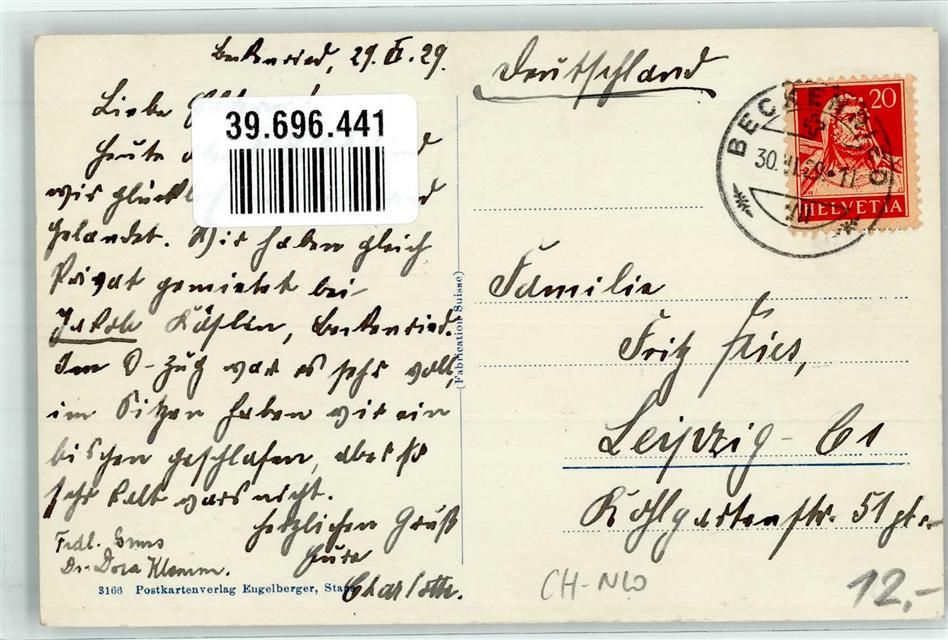 Beckenried, 29. VI. 29.
Liebe
Heute
wir glückl
gelandet. Wir haben gleich
Privat gemietet bei
Jakob Käslin, Beckenried.
Im D-Zug war es sehr voll,
im Sitzen haben wir ein
bischen geschlafen, aber so
sehr kalt wars nicht.
Herzlichen Gruß
Eure
Charlotte.
Frdl. Gruss
Dr. Dora Klemm.
3166 Postkartenverlag Engelberger, Stans
39.696.441
(Fabrication Suisse)
Deutschland
BECKENRIED
30.VI.29.-11
20
HELVETIA
Familie
Fritz Kies,
Leipzig - C1
Kohlgartenstr. 51
CH-NW
12,-